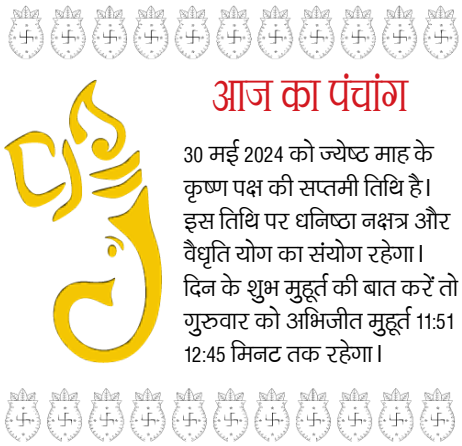 आज का पंचांग
30 मई 2024 को ज्येष्ठ माह के
कृष्ण पक्ष की सप्तमी तिथि है।
इस तिथि पर धनिष्ठा नक्षत्र और
वैधृति योग का संयोग रहेगा।
दिन के शुभ मुहूर्त की बात करें तो
गुरुवार को अभिजीत मुहूर्त 11:51
12:45 मिनट तक रहेगा।